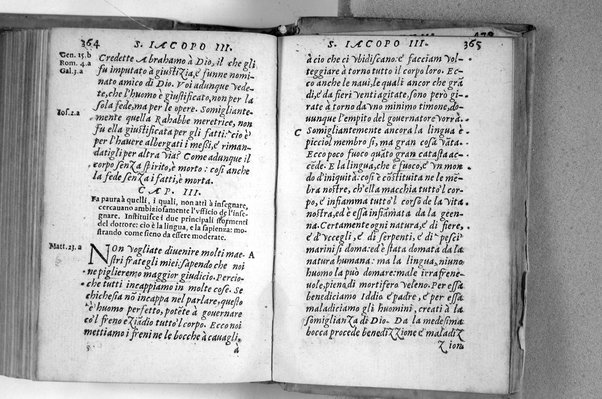 364 S. IACOPO III.
Gen. 15.b
Rom. 4.a
Gal. 3.a
Credette Abrahamo à Dio, il che gli
fu imputato à giustizia, e funne nomi-
nato amico di Dio. Voi adunque vede-
te, che l'huomo è giustificato, non per la
sola fede, ma per le opere. Somigliante-
Ios. 2.a
mente quella Rahabbe meretrice, non
fu ella giustificata per gli fatti: cio è
per l'hauere albergati i messi, e riman-
datigli per altra via? Come adunque il
corpo senza spirito, è morto: cosi anche
la fede senza i fatti, è morta.
CAP. III.
Fa paura à quelli, i quali, non atti à insegnare,
cercauano ambiziosamente l'ufficio de l'inse-
gnare. Instituisce i due principali istromenti
del dottore: cio è la lingua, e la sapienza: mo-
strando come seno da essere moderate.
Matt. 23.a
NOn vogliate diuenire molti mae- A
stri frategli miei: sapendo che noi
ne piglieremo maggior giudicio. Percio-
che tutti incappiamo in molte cose. Se
chi chesia nō incappa nel parlare, questo
è huomo perfetto, potēte à gouernare
co'l freno eziādio tutto'l corpo. Ecco noi
mettiamo i freni ne le bocche à cauagli,
à
S. IACOPO III. 365
à cio che ci vbidiscano: e facciam vol-
teggiare à torno tutto il corpo loro. Ec-
co anche le naui, le quali ancor che gran
di, e da fieri venti agitate, sono però gi-
rate à torno da vno minimo timone, do-
uunque l'empito del gouernatore vorrà.
C Somigliantemente ancora la lingua è
picciol membro sì, ma gran cosa vāta.
Ecco poco fuoco quāto gran catasta ac-
cēde. E la lingua, che è fuoco, e vn mon-
do d'iniquità: cosi è cōstituita ne le mē-
bra nostre, ch'ella macchia tutto'l cor
po, e infiamma tutto'l corso de la vita
nostra, ed è essa infiāmata da la geen-
na. Certamente ogni natura, e di fiere,
e d'vccegli, e di serpenti, e di pesci
marini si doma: ed è stata domata da la
natura humana: ma la lingua, niuno
huomo la può domare: male irrafrene-
uole, piena di mortifero veleno. Per essa
benediciamo Iddio e padre, e per essa
maladiciamo gli huomini, creati à la
somiglianza di Dio. Da la medesima
bocca procede benedizzione e maladiz
zion